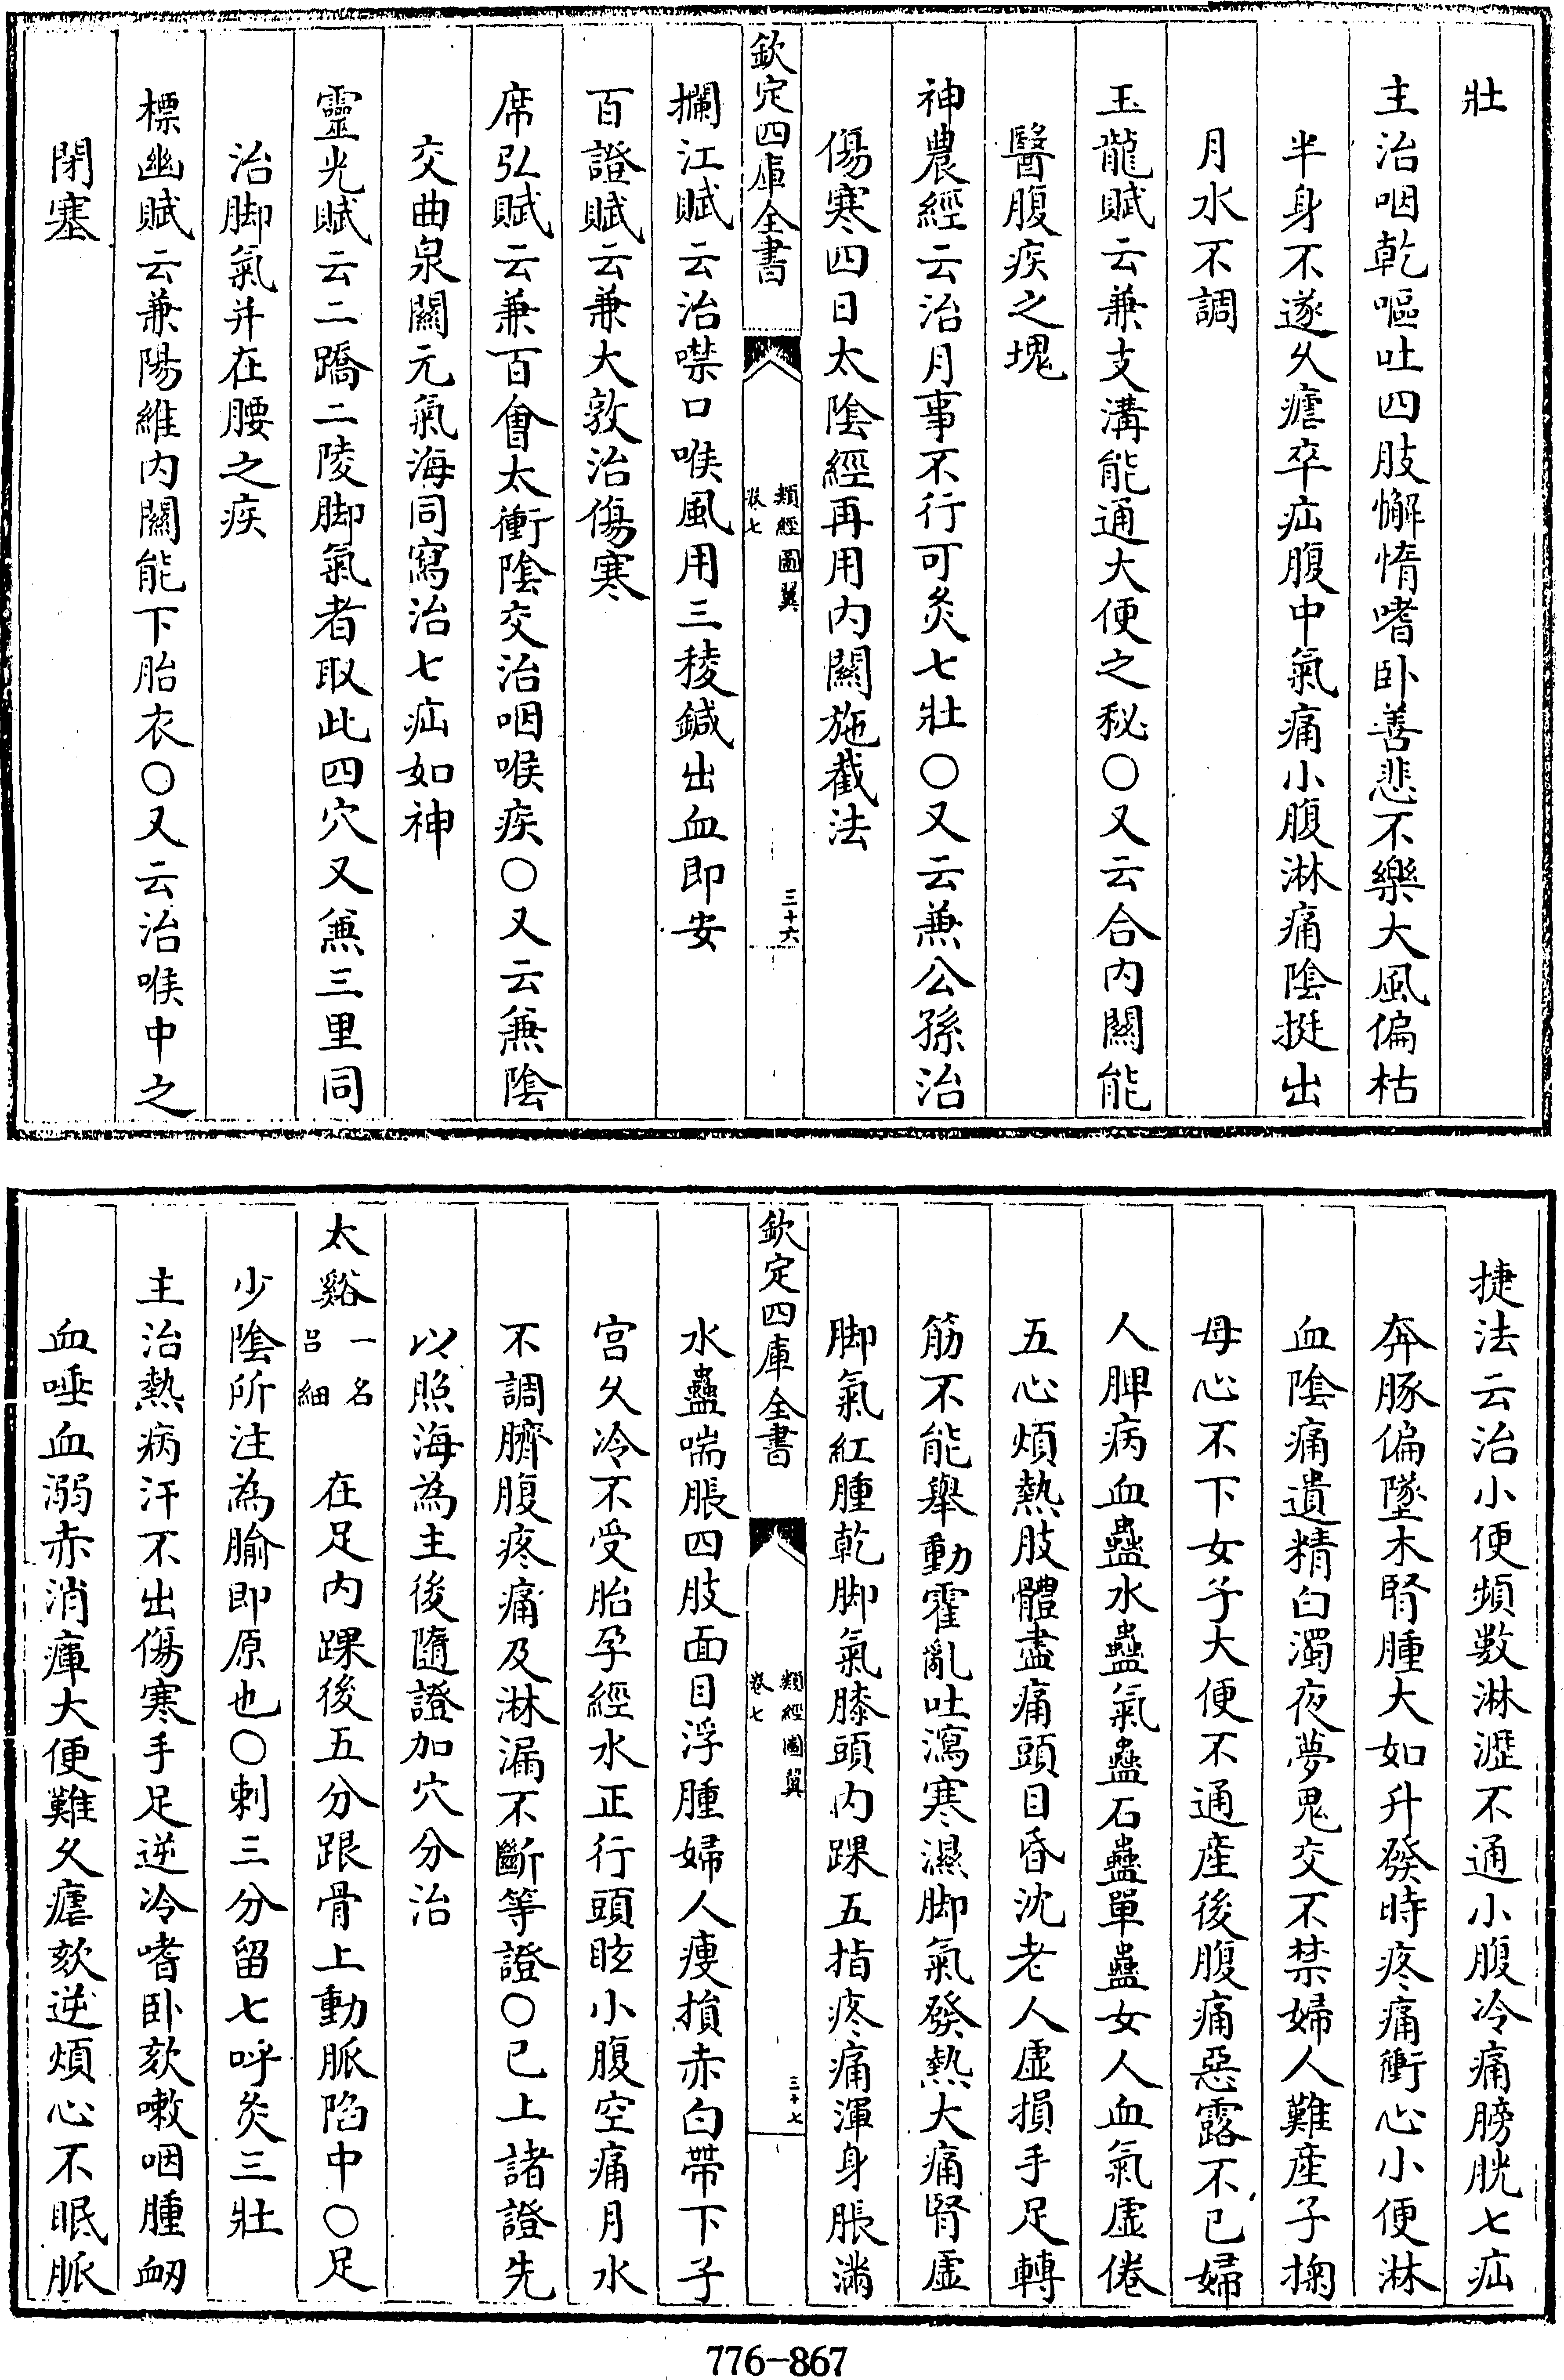 壯
主治咽乾嘔吐四肢懈惰嗜卧善悲不樂大風偏枯
半身不遂久瘧卒疝腹中氣痛小腹淋痛陰挺出
月水不調
玉龍賦云兼支溝能通大便之秘○又云合内關能
醫腹疾之塊
神農經云治月事不行可灸七壯○又云兼公孫治
傷寒四日太陰經再用内關施截法
欽定四庫全書
類經圖翼
卷七
三十六
攔江賦云治噤口喉風用三稜鍼出血即安
百證賦云兼大敦治傷寒
席弘賦云兼百會太衝陰交治咽喉疾○又云兼陰
交曲泉關元氣海同寫治七疝如神
靈光賦云二蹻二陵脚氣者取此四穴又兼三里同
治脚氣并在腰之疾
標幽賦云兼陽維内關能下胎衣○又云治喉中之
閉塞
捷法云治小便頻數淋瀝不通小腹冷痛膀胱七疝
奔豚偏墜木腎腫大如升發時疼痛衝心小便淋
血陰痛遺精白濁夜夢鬼交不禁婦人難産子掬
母心不下女子大便不通産後腹痛惡露不已婦
人脾病血蠱水蠱氣蠱石蠱單蠱女人血氣虚倦
五心煩熱肢體盡痛頭目昏沈老人虚損手足轉
筋不能舉動霍亂吐瀉寒濕脚氣發熱大痛腎虚
脚氣紅腫乾脚氣膝頭内踝五指疼痛渾身脹滿
欽定四庫全書
類經圖翼
卷七
三十七
水蠱喘脹四肢面目浮腫婦人瘦損赤白帶下子
宫久冷不受胎孕經水正行頭眩小腹空痛月水
不調臍腹疼痛及淋漏不斷等證○已上諸證先
以照海為主後隨證加穴分治
太谿一名吕細 在足内踝後五分跟骨上動脈陷中○足
少陰所注為腧即原也○刺三分留七呼灸三壯
主治熱病汗不出傷寒手足逆冷嗜卧欬嗽咽腫衂
血唾血溺赤消痺大便難久瘧欬逆煩心不眠脈
776-867